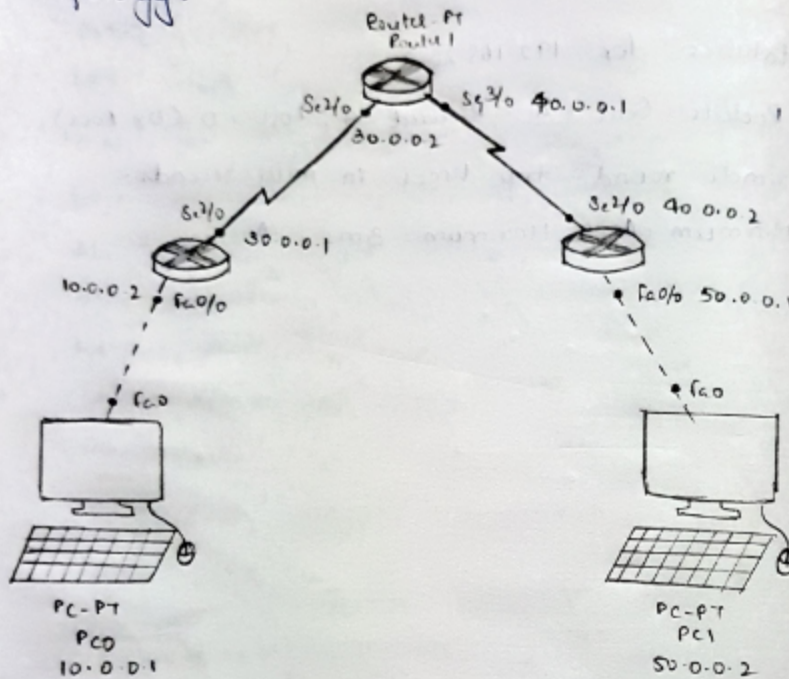 Router-PT
Router1
Se2/0
Se3/0 40.0.0.1
30.0.0.2
Se2/0
30.0.0.1
Se2/0 40.0.0.2
10.0.0.2
Fa0/0
Fa0/0 50.0.0.
Fa0
Fa0
PC-PT
PC0
10.0.0.1
PC-PT
PC1
50.0.0.2